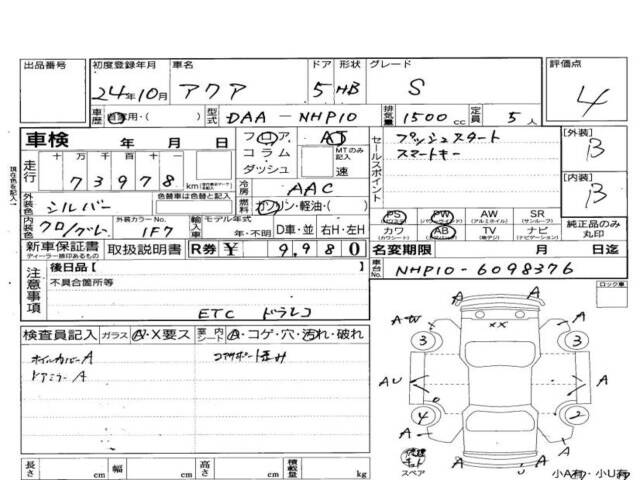 出品番号 初度登録年月 車名 ドア 形状 グレード 評価点
24年10月 アクア 5 HB S 4
車歴 自家用・( ) 型式 DAA-NHP10 排気量 1500cc 定員 5人
車検 年 月 日 フロア AT セールスポイント プッシュスタート [外装] B
コラム MTのみ記入 スマートキー
ダッシュ 速
走行 十 万 千 百 十 一
7 3 9 7 8 km 冷房 AAC [内装] B
色替車は色替と記入
外装色 シルバー 燃料 ガソリン・軽油・( )
PS PW AW SR
(パワステ) (パワーウィンド) (アルミホイル) (サンルーフ)
内装色 クロ/グレー 外装カラーNo. 1F7 輸入車 モデル年式 カワ AB TV ナビ 純正品のみ丸印
年・不明 D車・並 右H・左H (カワシート) (エアバッグ) (地デジ) (ナビゲーション)
新車保証書 取扱説明書 R券 ¥ 9,980 名変期限 月 日迄
ディーラー捺印あるもの
車台No. NHP10-6098376
注意事項 後日品【 】 ロック車
不具合箇所等
ETC ドラレコ
検査員記入 ガラス A・X要ス 室内シート A・コゲ・穴・汚れ・破れ
ホイルカバーA コアサポート歪み
ドアミラーA
A A A
A-W XX A
3 3
AU A
A
U
4 2
A A
A A
スペア U
長さ cm 幅 cm 高さ cm 積載量 kg 小A有・小U有